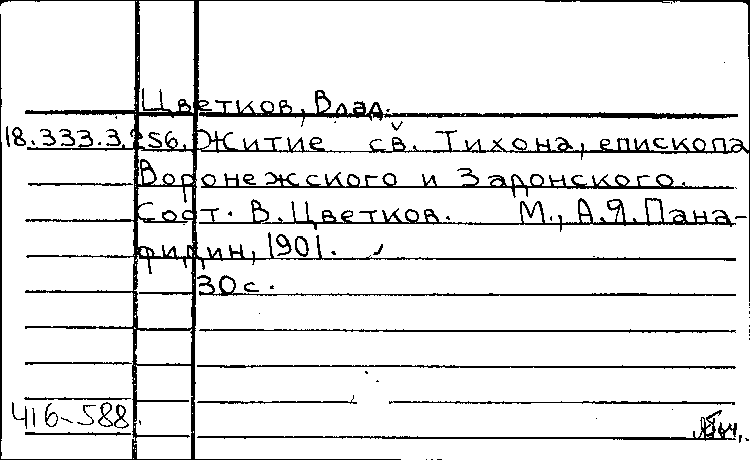 Цветков, Влад.
18.333.3.256. Житие св. Тихона, епископа
Воронежского и Задонского.
Сост. В. Цветков. М., А.Я. Пана-
фидин, 1901.
30 с.
416-588